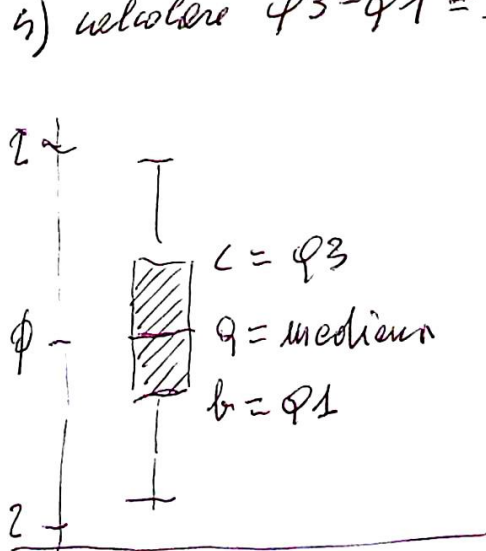 calcolare Q3-Q1 =
c = Q3
a = mediana
b = Q1